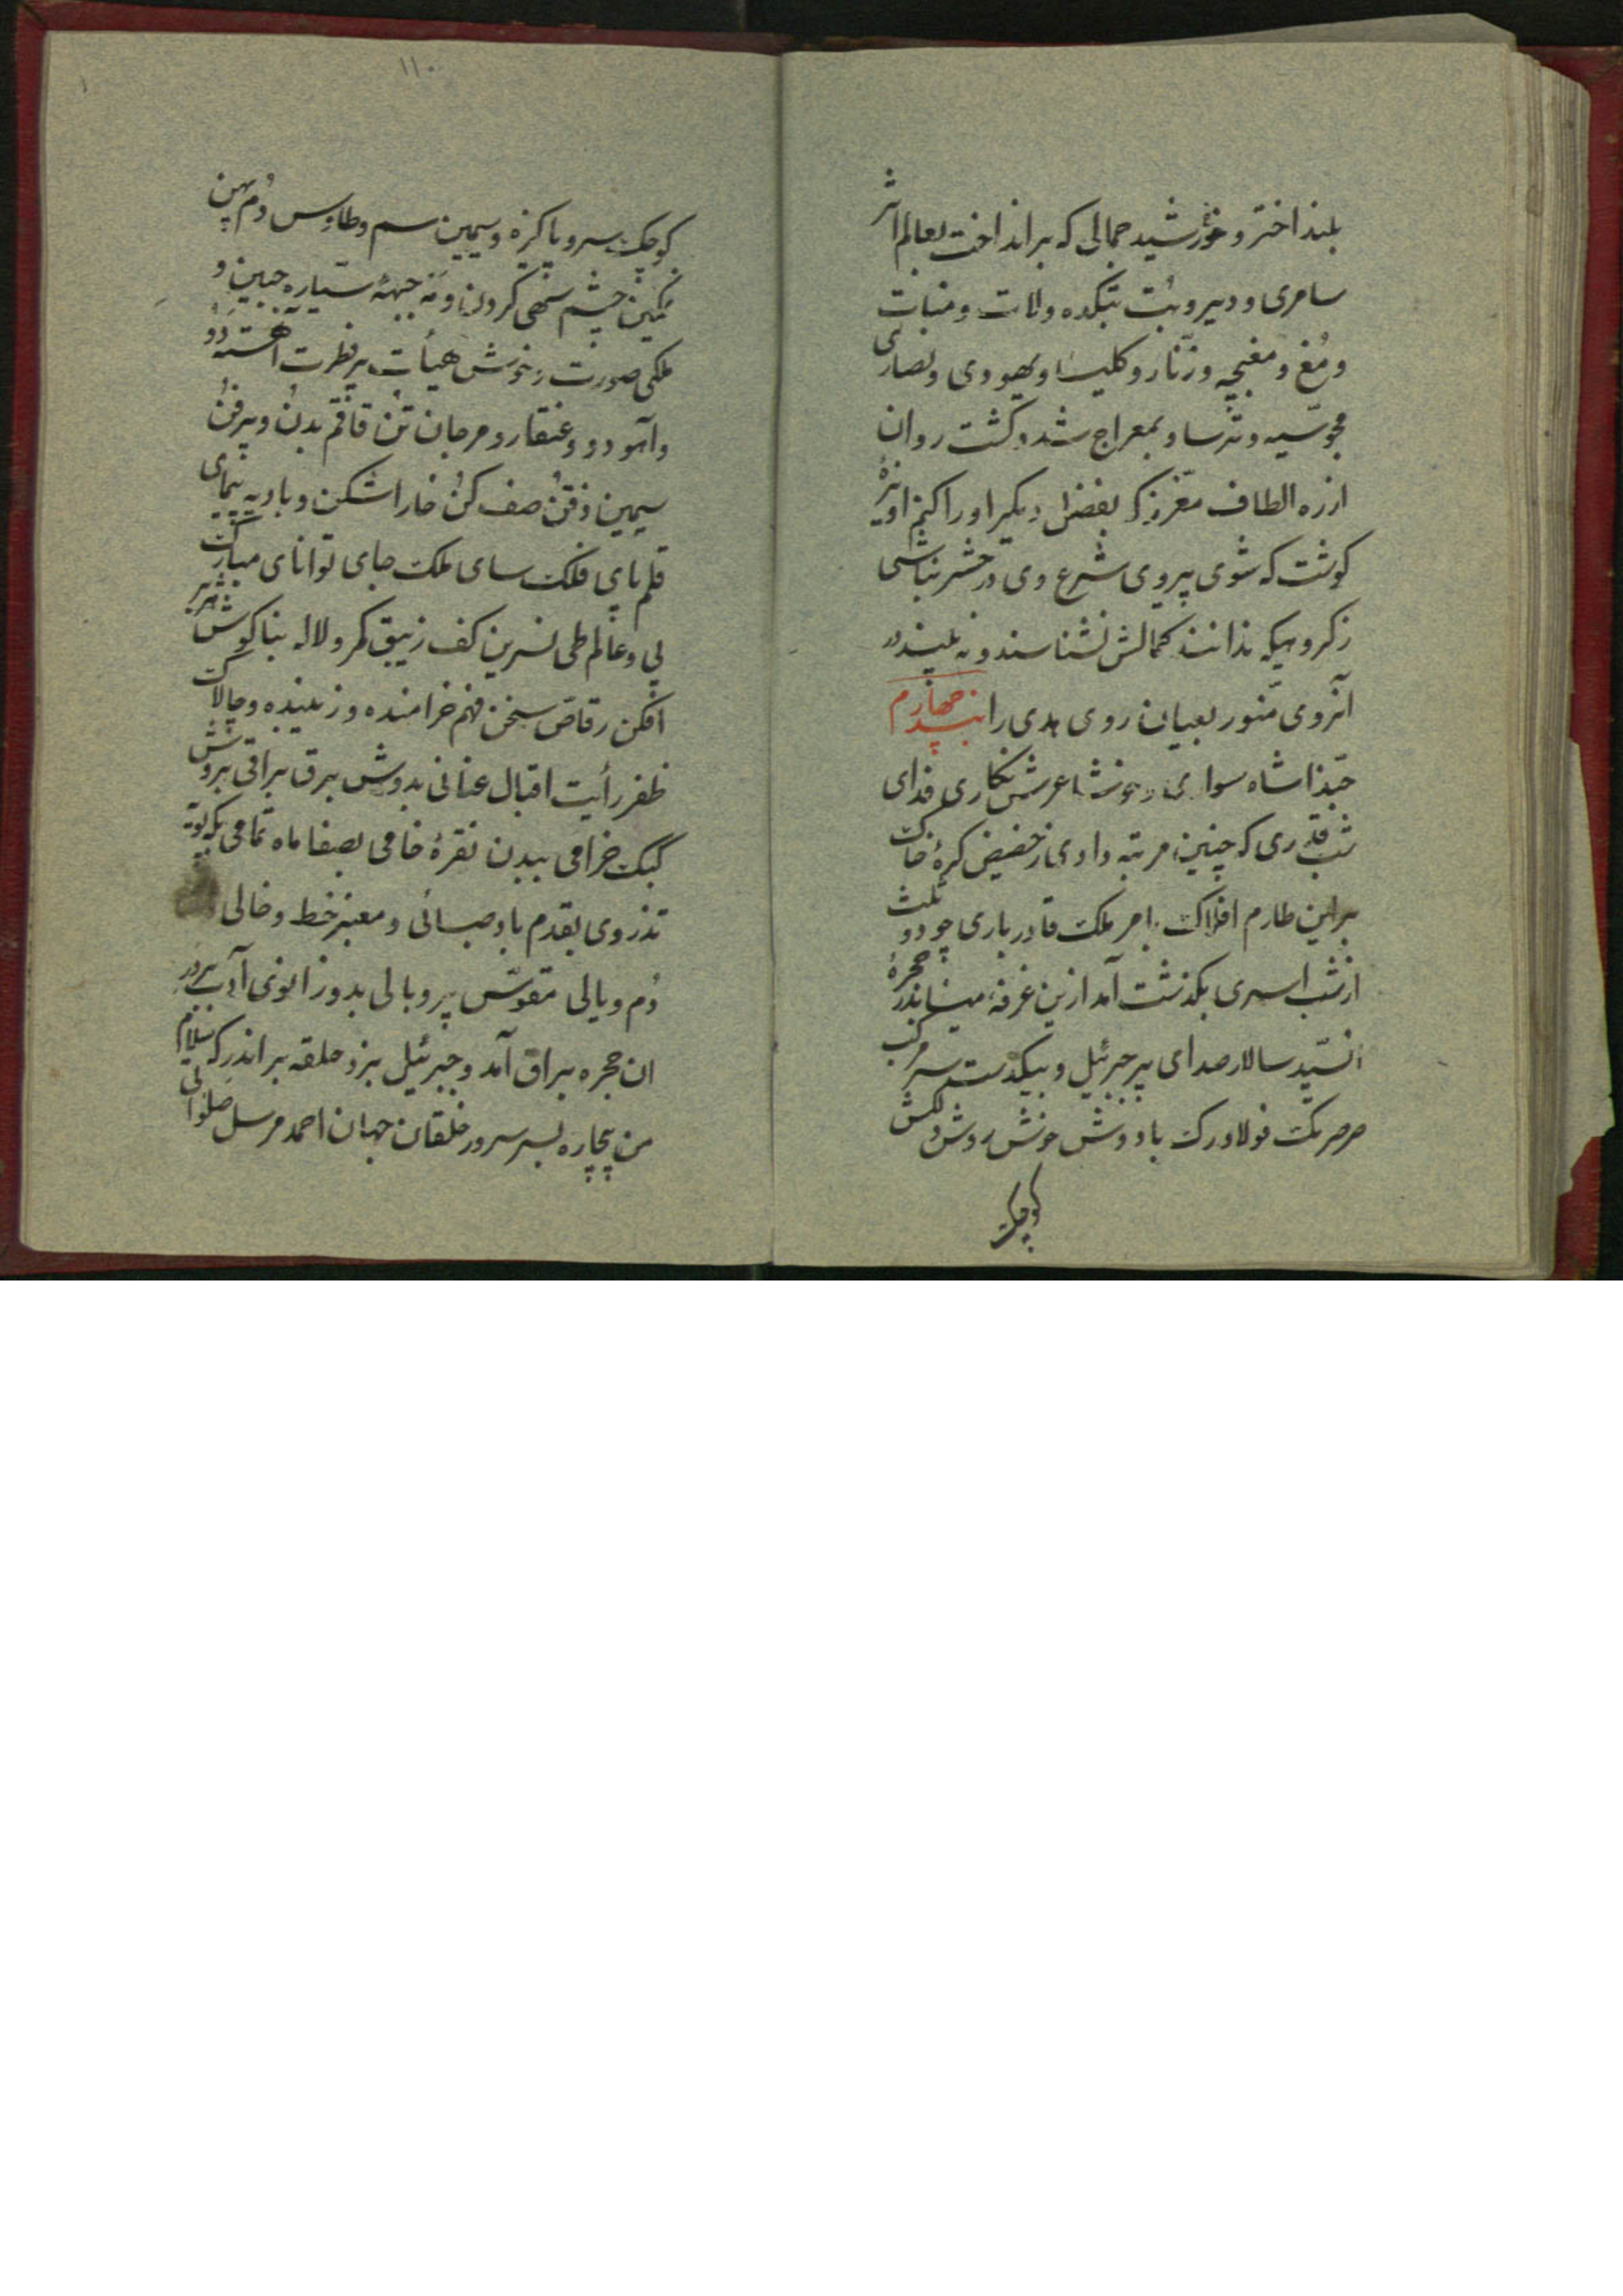 بلند اختر و خورشید جمالی که برانداخت بعالم اثر
سامری و دیر و بت بتکده ولات و منات
و مُغ و مغبچه و زنّار و کلیسا و یهودی و نصارای
مجوسیه و ترسا و بمعراج شد و گشت روان
ازره الطاف معزز که بفضل دیگر او را کنم
گوشت که شوی پیروی شرع وی در حشر نباشی
زکروهیکه ندانند کمالش نشناسند و نه بینند
آنروی منور بعیان روی هدی را بند چهارم
حبّذا شاه سواری و خوشا عرش نکاری فدای
شب قدری که چنین مرتبه دادی ز حضیض کرهٔ خاک
براین طارم افلاک بامر ملک قادر باری چو دو ثلث
از شب اسری بگذشت آمد ازین غرفهٔ مینا بدر حجرهٔ
آنسیّد سالار صدای پر جبرئیل و بیکدست مرکب
صرصر تک فولاد رگ باد و وش خوش روش و دلکش
کوچک
۱۱۰
کوچک سر و پاکیزه و سیمین سم و طاوس دُم پهن
نمکین چشم سهی گردن و مه جبههٔ ستیاره جبین و
ملکی صورت و خوش هیأت پر فطرت آهسته رو
و آهو دو و عنقار و مرجان تن قاقم بدن و پر فن
سیمین ذقن صف کن خارا شکن و بادیه پیمای
قلم پای فلک سای ملک جای توانای مبارک
پی و عالم طی نسرین کف زیبق کمر و لاله بناگوش
افکن رقاص سخن فهم خرامنده و زیبنده و چالاک
ظفر رأیت اقبال عنانی بدوش برق براقی بروش
کبک خرامی ببدن نقرهٔ خامی بصفا ماه تمامی
تذروی بقدم باد صبائی و معنبر خط و خالی
دُم و یالی مقوّس پر و بالی بدو زانوی ادب بر در
ان حجره براق آمد و جبرئیل بزد حلقه بر اندر که سلام
من بیچاره بسر سرور خلقان جهان احمد مرسل صلواتی